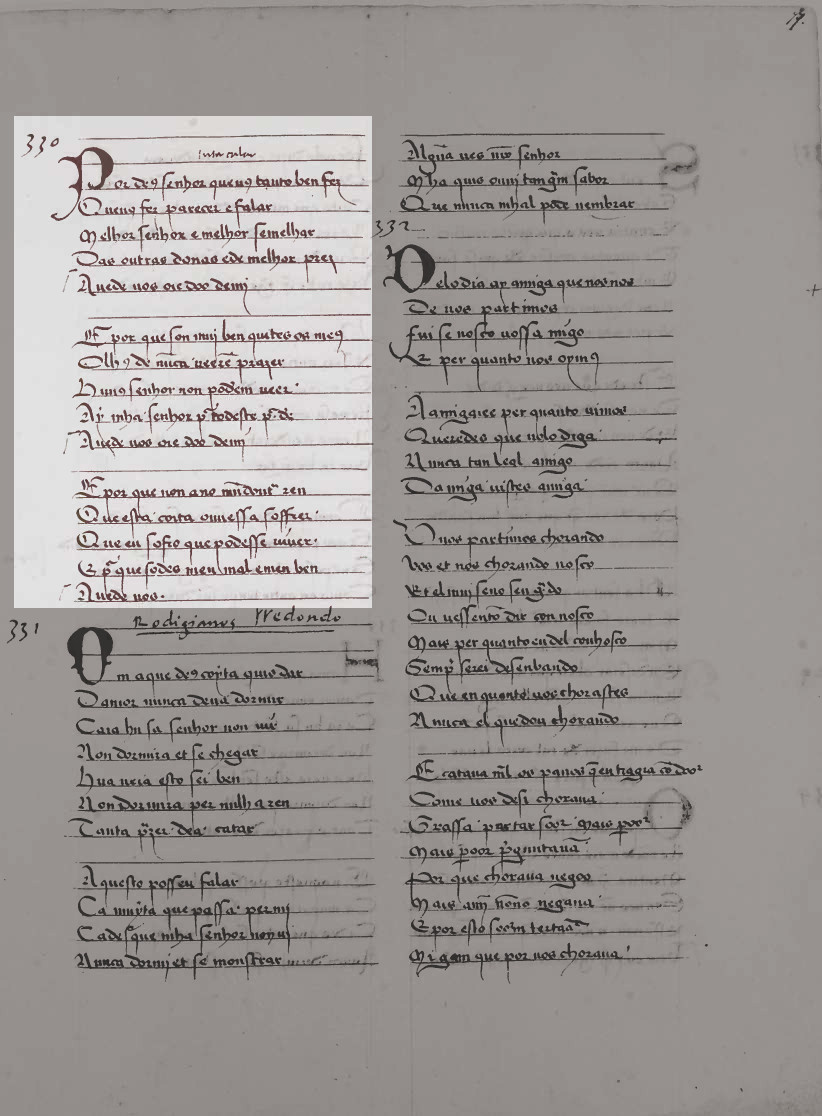 330
Por de9 senhor quen9 tanto ben fez
Quen9 fez parecer e falar
Melhor senhor e melhor semelhar
Das outras donas e de melhor prez
Auede uos oie doo demj
E por que son muj ben quites os me9
Olh9 de nũca ueerẽ prazer
Hun9 senhor non podem ueer
Ay mha senhor por todeste por de9
Auede uos oie doo demj
E por que non a no mũdoutra ren
Que esta coita ouuessa soffrer
Que eu sofro que podesse uiuer
E por que sodes meu mal e meu ben
Auede uos.
331
Rodrigianes Redondo
Om a que de9 coyta quis dar
Damor nunca deuā dormir
Ca ia hu sa senhor non uir
Non dormira et se chegar
Hu a ueia esto sei ben
Non dormira per nulha ren
Tanta przer dea catar
Aquesto posseu falar
Ca muyta que passa per mj
Ca des que mha senhor non uj
Nunca dormj et se monstrar
Algũa ues nr̄o senhor
Mha quis ouuj tan grm̄ sabor
Que nunca mhal pode nembrar
332
Pelo dia ay amiga que nos nos
De uos partimos
Fui se nosco uossa migo
E per quanto nos oym9
Aamigaies per quanto uimos
Queredes que uolo diga
Nunca tan leal amigo
Damiga uistes amiga
U nos partimos chorando
Uos et nos chorando nosco
Et el muj seno sen grado
Ou uessento dir con nosco
Mais per quanto eu del conhosco
Sempr serei desenbando
Que en quanto uos chorastes
Nunca el quedou chorando
E rataua
Come uos desi choraua
Grassa partar
Mais poor preguntaua
Por que choraua negos
Mais amj nono negaua
E por esto
Migam que por uos choraua